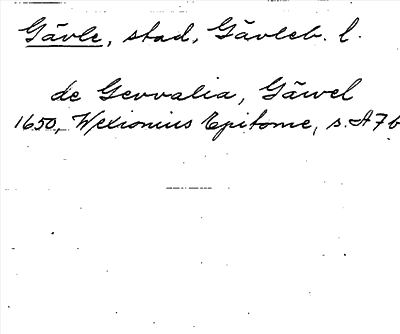 Gävle, stad, Gävleb. l.
de Gevvalia, Gäwel
1650, Wexionius Epitome, s. A7b